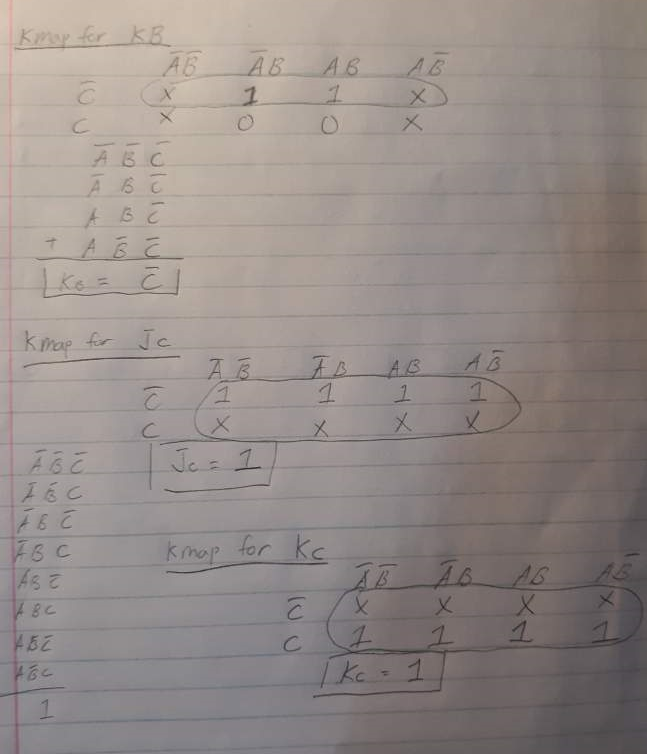 Kmap for KB
A̅B̅ A̅B AB AB̅
C̅ X 1 1 X
C X 0 0 X
A̅ B̅ C̅
A̅ B C̅
A B C̅
+ A B̅ C̅
KB = C̅
Kmap for Jc
A̅ B̅ A̅ B AB A B̅
C̅ 1 1 1 1
C X X X X
Jc = 1
A̅ B̅ C̅
A̅ B̅ C
A̅ B C̅
A̅ B C
A B C̅
A B C
A B̅ C̅
A B̅ C
1
Kmap for Kc
A̅ B̅ A̅ B AB A B̅
C̅ X X X X
C 1 1 1 1
Kc = 1